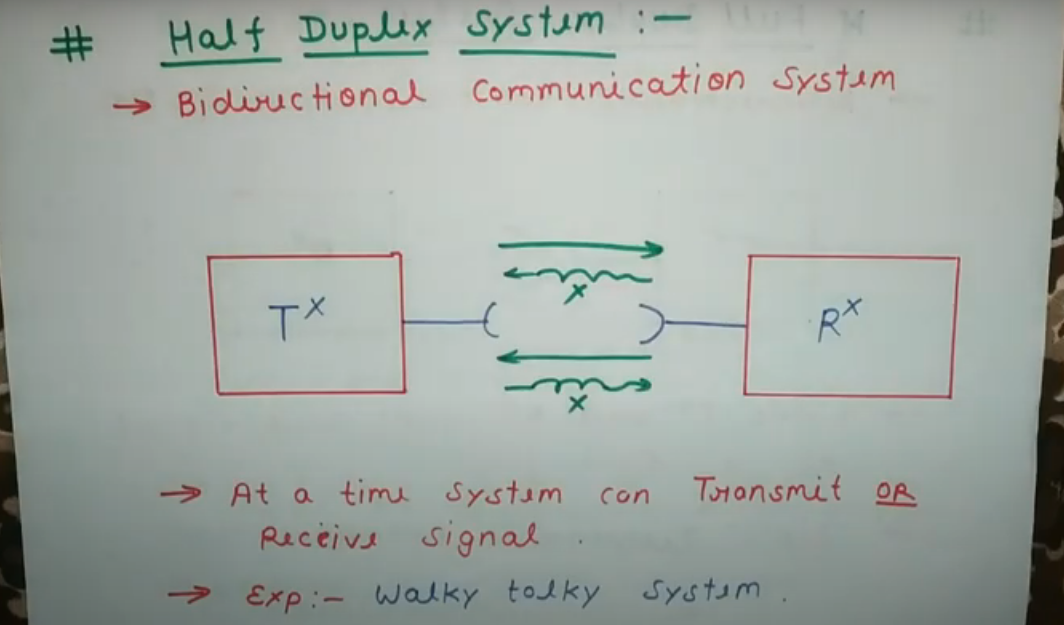 # Half Duplex System :-
→ Bidirectional Communication System
x
T^x
R^x
x
→ At a time system can Transmit OR
Receive signal .
→ Exp:- Walky talky system .